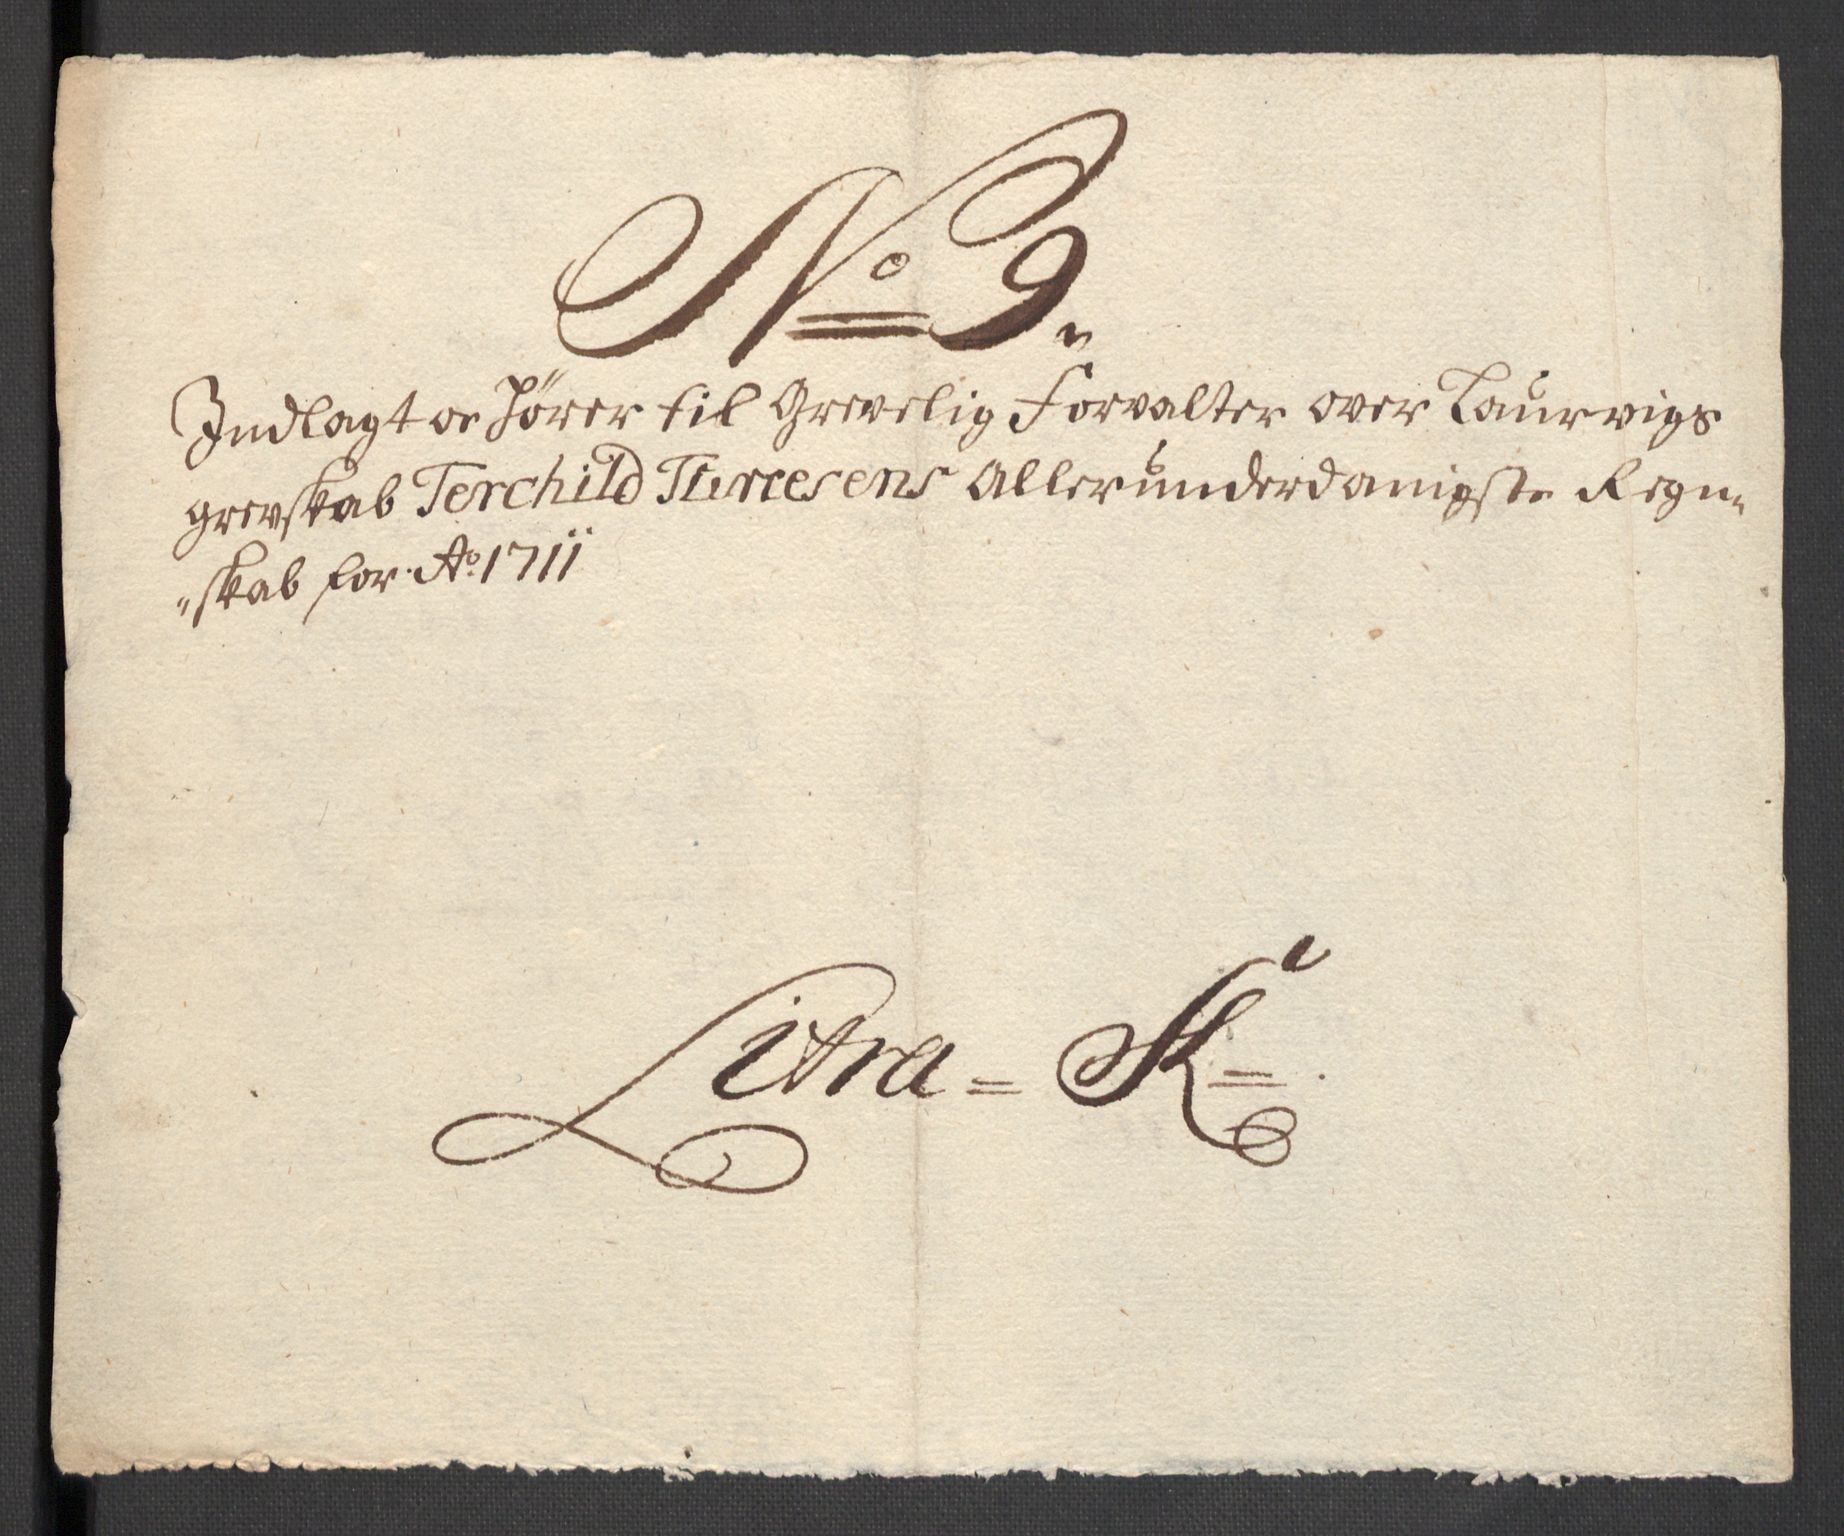 No 9.
Indlagt oc hörer til Grevelig Forvalter over Laurvigs
grevskab Terchild Turresens Allerunderdanigste Regn„
„skab for Ao 1711
Litra = K =.